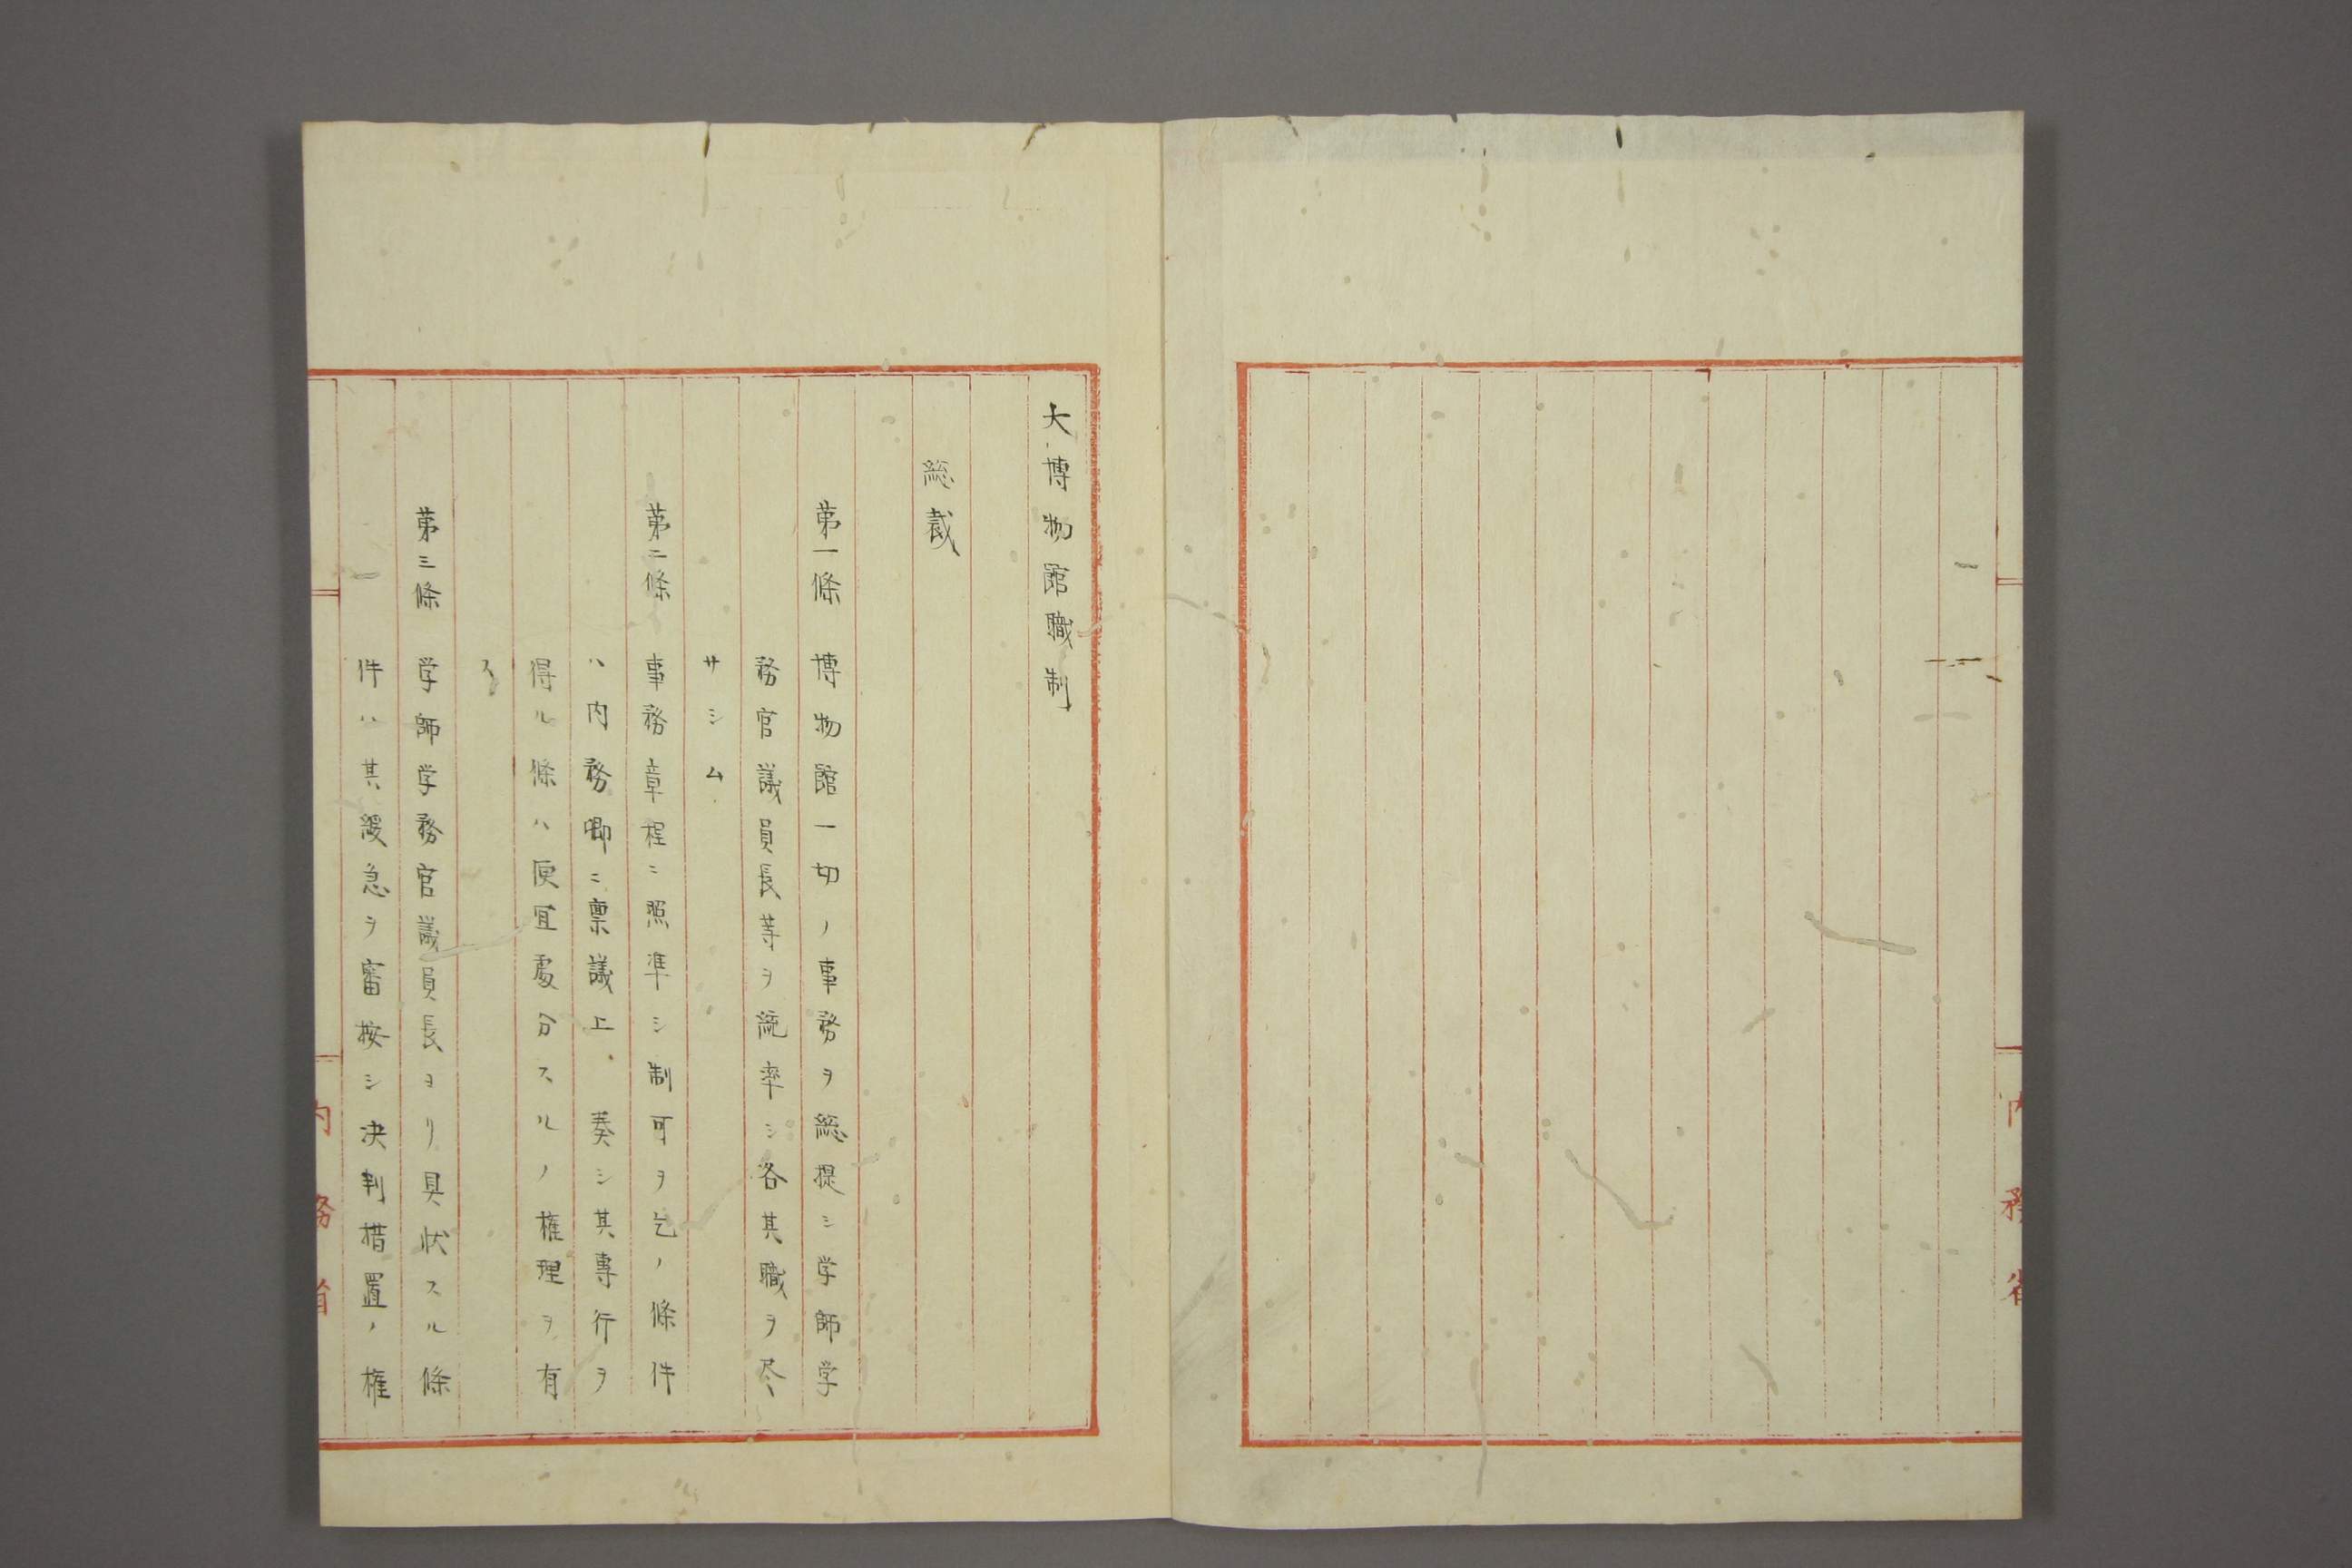 内務省
大博物館職制
総裁
第一條 博物館一切ノ事務ヲ総提シ学師学
務官議員長等ヲ統率シ各其職ヲ尽
サシム
第二條 事務章程ニ照準シ制可ヲ乞ノ條件
ハ内務卿ニ稟議上 奏シ其専行ヲ
得ル條ハ便宜処分スルノ権理ヲ有
ス
第三條 学師学務官議員長ヨリ具状スル條
件ハ其緩急ヲ審按シ決判措置ノ権
内務省